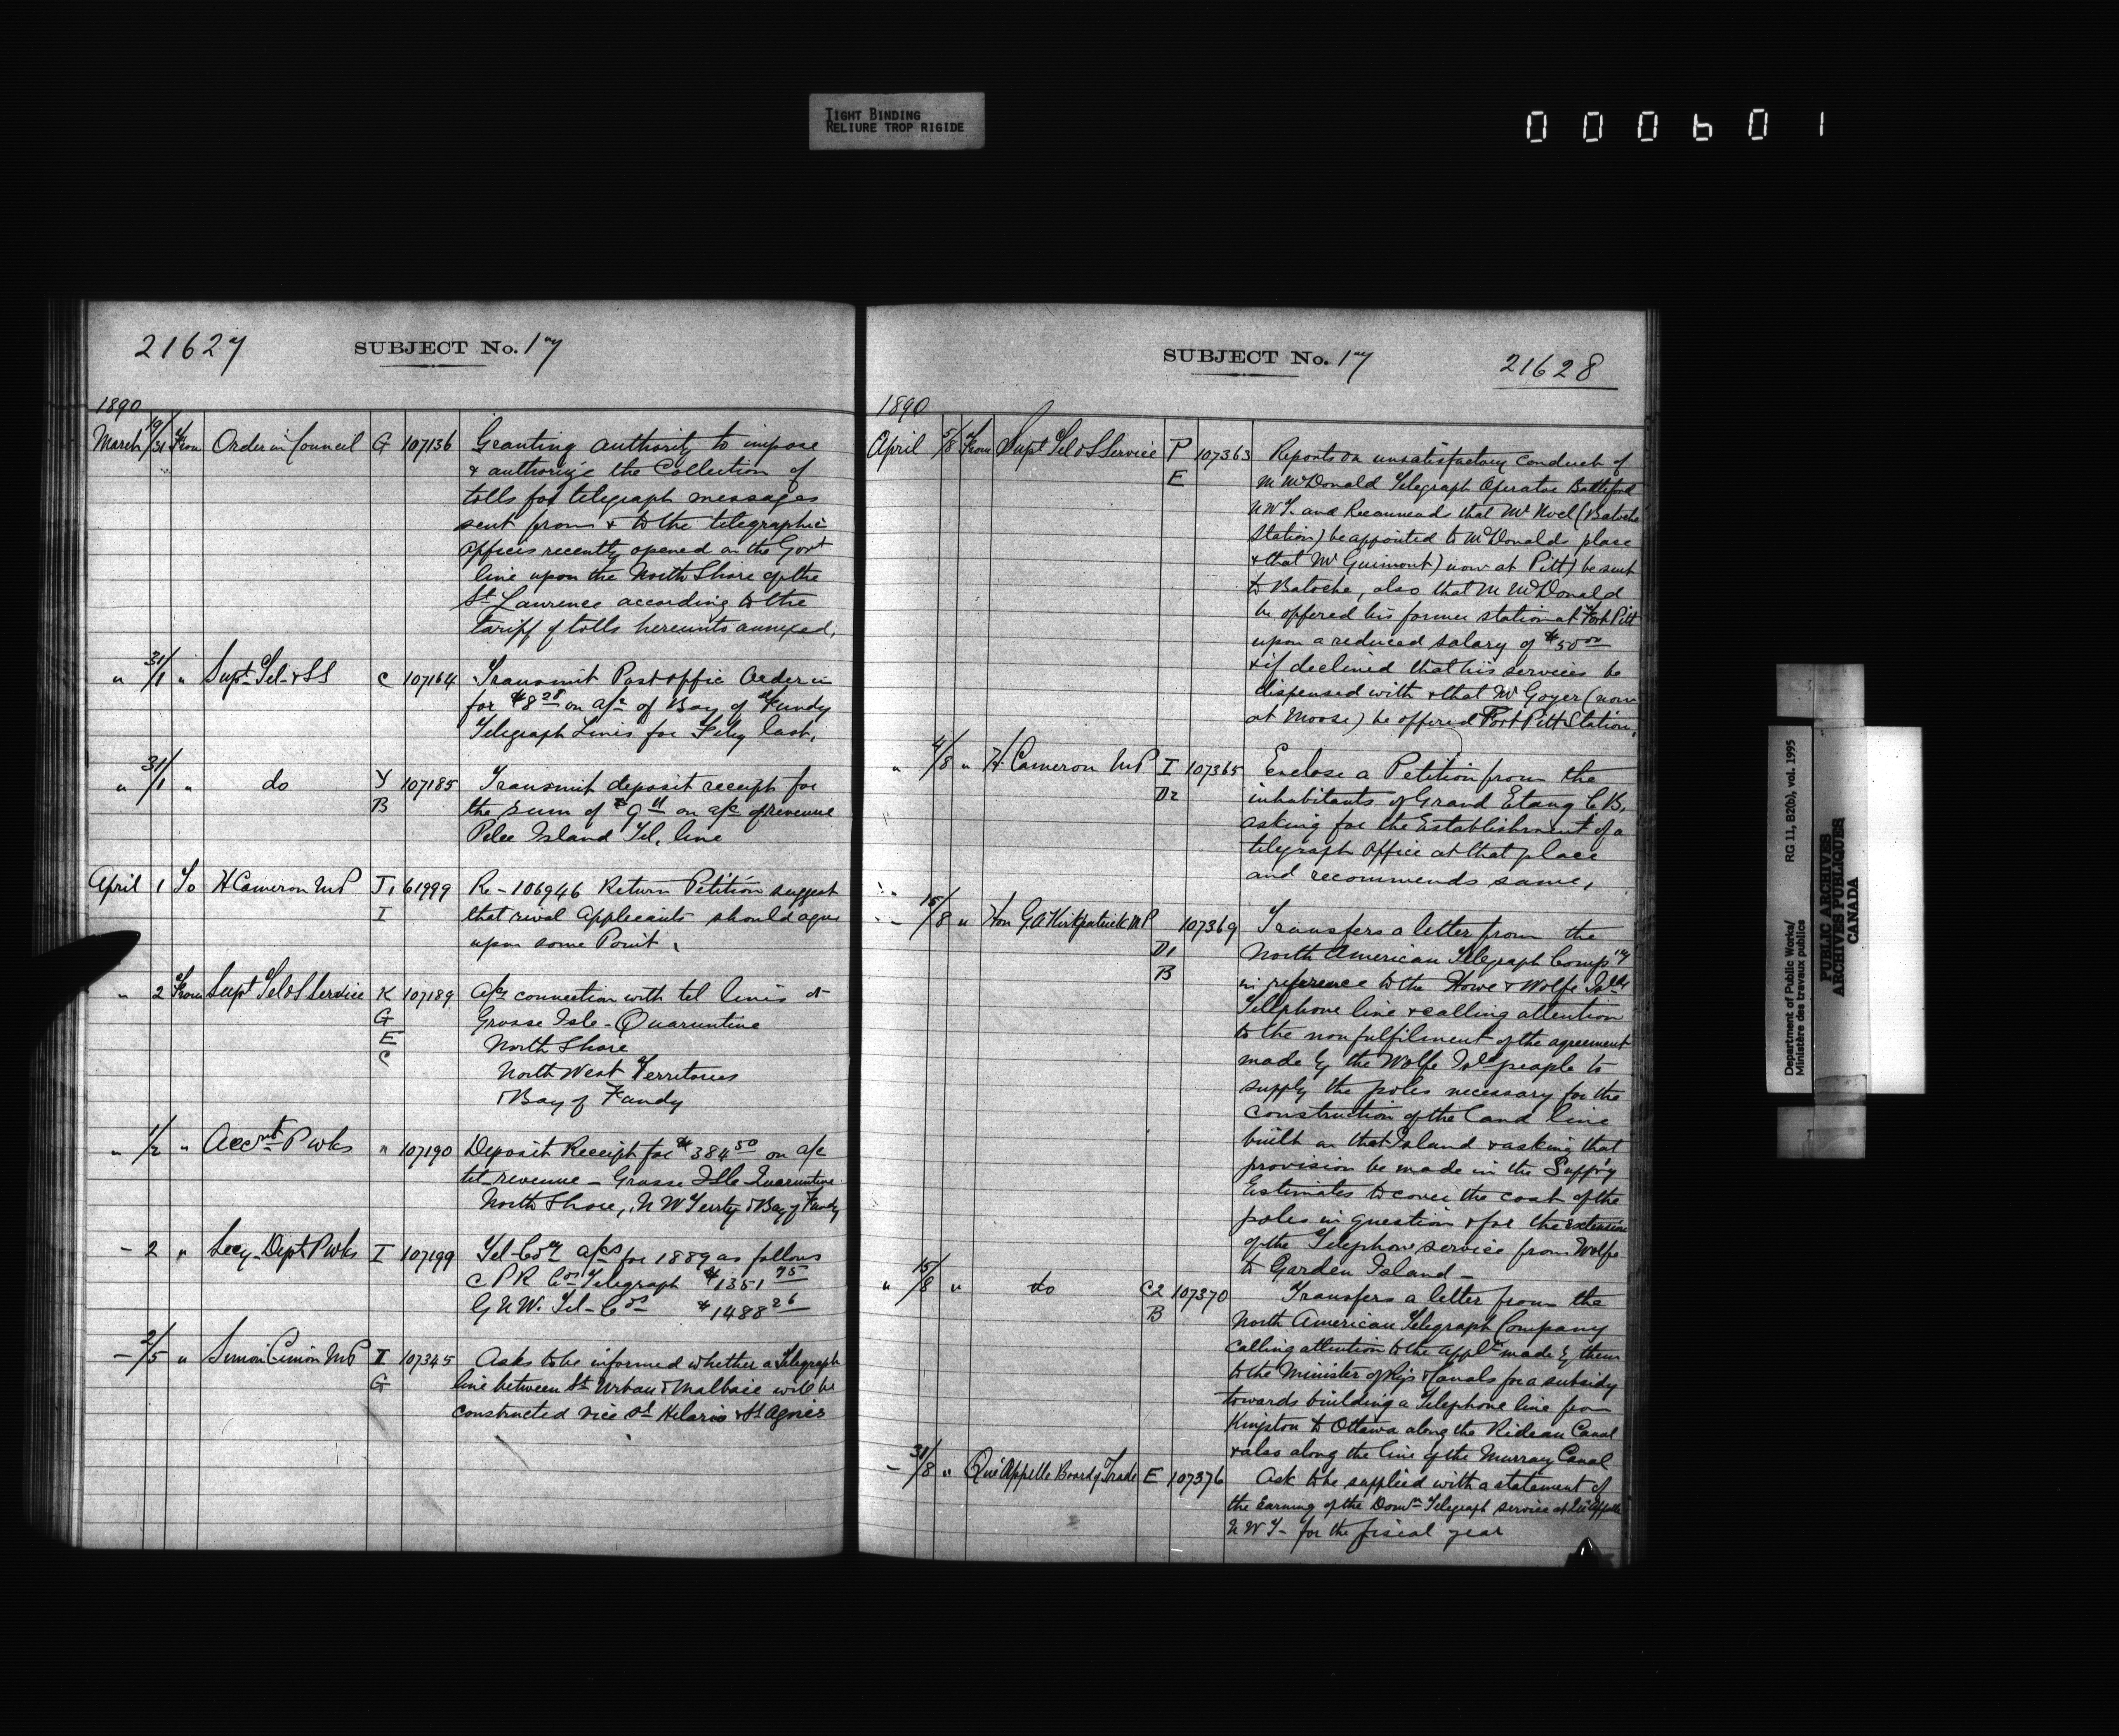 TIGHT BINDING
RELIURE TROP RIGIDE
000601
21627
SUBJECT No. 17
1890
March 19/31 From Order in Council G 107136 Granting authority to impose
& authorize the Collection of
tolls for telegraph messages
sent from & to the telegraphic
Offices recently opened on the Govt
line upon the North Shore of the
St. Lawrence according to the
tariff of tolls hereunto annexed.
" 31/1 " Supt Tel & SS C 107164 Transmit Post office Order in
for $8 28 on a/c of Bay of Fundy
Telegraph Lines for Feby last.
" 31/1 " do Y 107185 Transmit deposit receipt for
B the sum of $9 11 on a/c of revenue
Pelee Island Tel. line
April 1 To H Cameron MP J1 61999 Re - 106946 Return Petition suggest
I that rival Applicants should agree
upon some Point.
" 2 From Supt Tel & S Service K 107189 a/cs connection with tel lines at
G Grosse Isle - Quarantine
E North Shore
C North West Territories
& Bay of Fundy
" 1/2 " Accnt P Wks " 107190 Deposit Receipt for $384 50 on a/c
tel revenue - Grosse Isle Quarantine
North Shore, N W Territy & Bay of Fundy
- 2 " Secy Dept P Wks I 107199 Tel Coy a/cs for 1889 as follows
C P R Cos Telegraph $1351 75
G N W. Tel - Cos $1488 26
- 2/5 " Simon Cimon MP I 107345 Asks to be informed whether a Telegraph
G line between St Urbain & Malbaie will be
constructed vice St Hilarie & St Agnes
SUBJECT No. 17
21628
1890
April 5/8 From Supt Tel & S Service P 107363 Reports on unsatisfactory conduct of
E M McDonald Telegraph Operator Battleford
N W T. and Recommends that Mr Noel (Batoche
Station) be appointed to McDonald place
& that Mr Guimont) now at Pitt) be sent
to Batoche, also that M McDonald
be offered his former station at Fort Pitt
upon a reduced salary of $50 00
& if declined that his services be
dispensed with & that Mr Goyer (now
at Moose) be offered Fort Pitt Station.
" 4/8 " H. Cameron MP I 107365 Enclose a Petition from the
D2 inhabitants of Grand Etang C B.
asking for the Establishment of a
telegraph office at that place
and recommends same.
- 15/8 " Hon G A Kirkpatrick MP 107369 Transfers a letter from the
D1 North American Telegraph Comp'y
B in reference to the Howe & Wolfe Islds
Telephone line & calling attention
to the non fulfilment of the agreement
made by the Wolfe Isld people to
supply the poles necessary for the
construction of the land line
built on that Island & asking that
provision be made in the Supp'y
Estimates to cover the cost of the
poles in question & for the extension
of the Telephone service from Wolfe
to Garden Island -
" 15/8 " do C2 107370 Transfers a letter from the
B North American Telegraph Company
calling attention to the Appln made by them
to the Minister of Rys & Canals for a subsidy
towards building a Telephone line from
Kingston to Ottawa along the Rideau Canal
& also along the line of the Murray Canal
- 31/8 " Qu'Appelle Board of Trade E 107376 Ask to be supplied with a statement of
the Earning of the Domn Telegraph service at Qu'Appelle
N W T - for the fiscal year
Department of Public Works/
Ministère des travaux publics
RG 11, B2(b), vol. 1995
PUBLIC ARCHIVES
ARCHIVES PUBLIQUES
CANADA